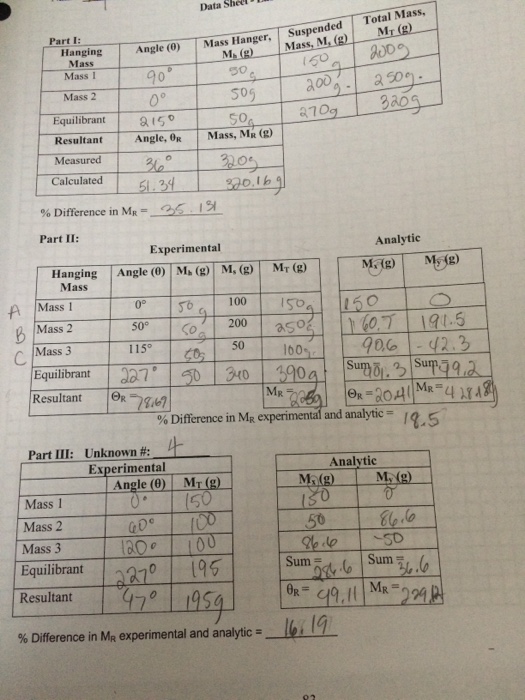 Data Sheet
Part I:
Hanging Mass | Angle (θ) | Mass Hanger, Mₕ (g) | Suspended Mass, Mₛ (g) | Total Mass, M_T (g)
Mass 1 | 90° | 50g | 150g | 200g
Mass 2 | 0° | 50g | 200g. | 250g.
Equilibrant | 215° | 50g | 270g | 320g
Resultant | Angle, θR | Mass, MR (g)
Measured | 36° | 320g
Calculated | 51.34 | 320.16g
% Difference in MR = 35.131
Part II:
Experimental
Analytic
Hanging Mass | Angle (θ) | Mₕ (g) | Mₛ (g) | M_T (g) | Mₓ (g) | Mᵧ (g)
A Mass 1 | 0° | 50g | 100 | 150g | 150 | 0
B Mass 2 | 50° | 50g | 200 | 250g | 160.7 | 191.5
C Mass 3 | 115° | 50g | 50 | 100g. | 90.6 | -42.3
Equilibrant | 227° | 50 | 340 | 390g | Sum = 401.3 | Sum = 149.2
Resultant | θR = 78.69 | MR = | θR = 20.41 | MR = 428.18g
% Difference in MR experimental and analytic = 18.5
Part III: Unknown #: 4
Experimental
Analytic
Angle (θ) | M_T (g) | Mₓ (g) | Mᵧ (g)
Mass 1 | 0° | 150 | 150 | 0
Mass 2 | 60° | 100 | 50 | 86.6
Mass 3 | 120° | 100 | 86.6 | -50
Equilibrant | 227° | 195 | Sum = 286.6 | Sum = 36.6
Resultant | 47° | 195g | θR = 49.11 | MR =
% Difference in MR experimental and analytic = 16.19